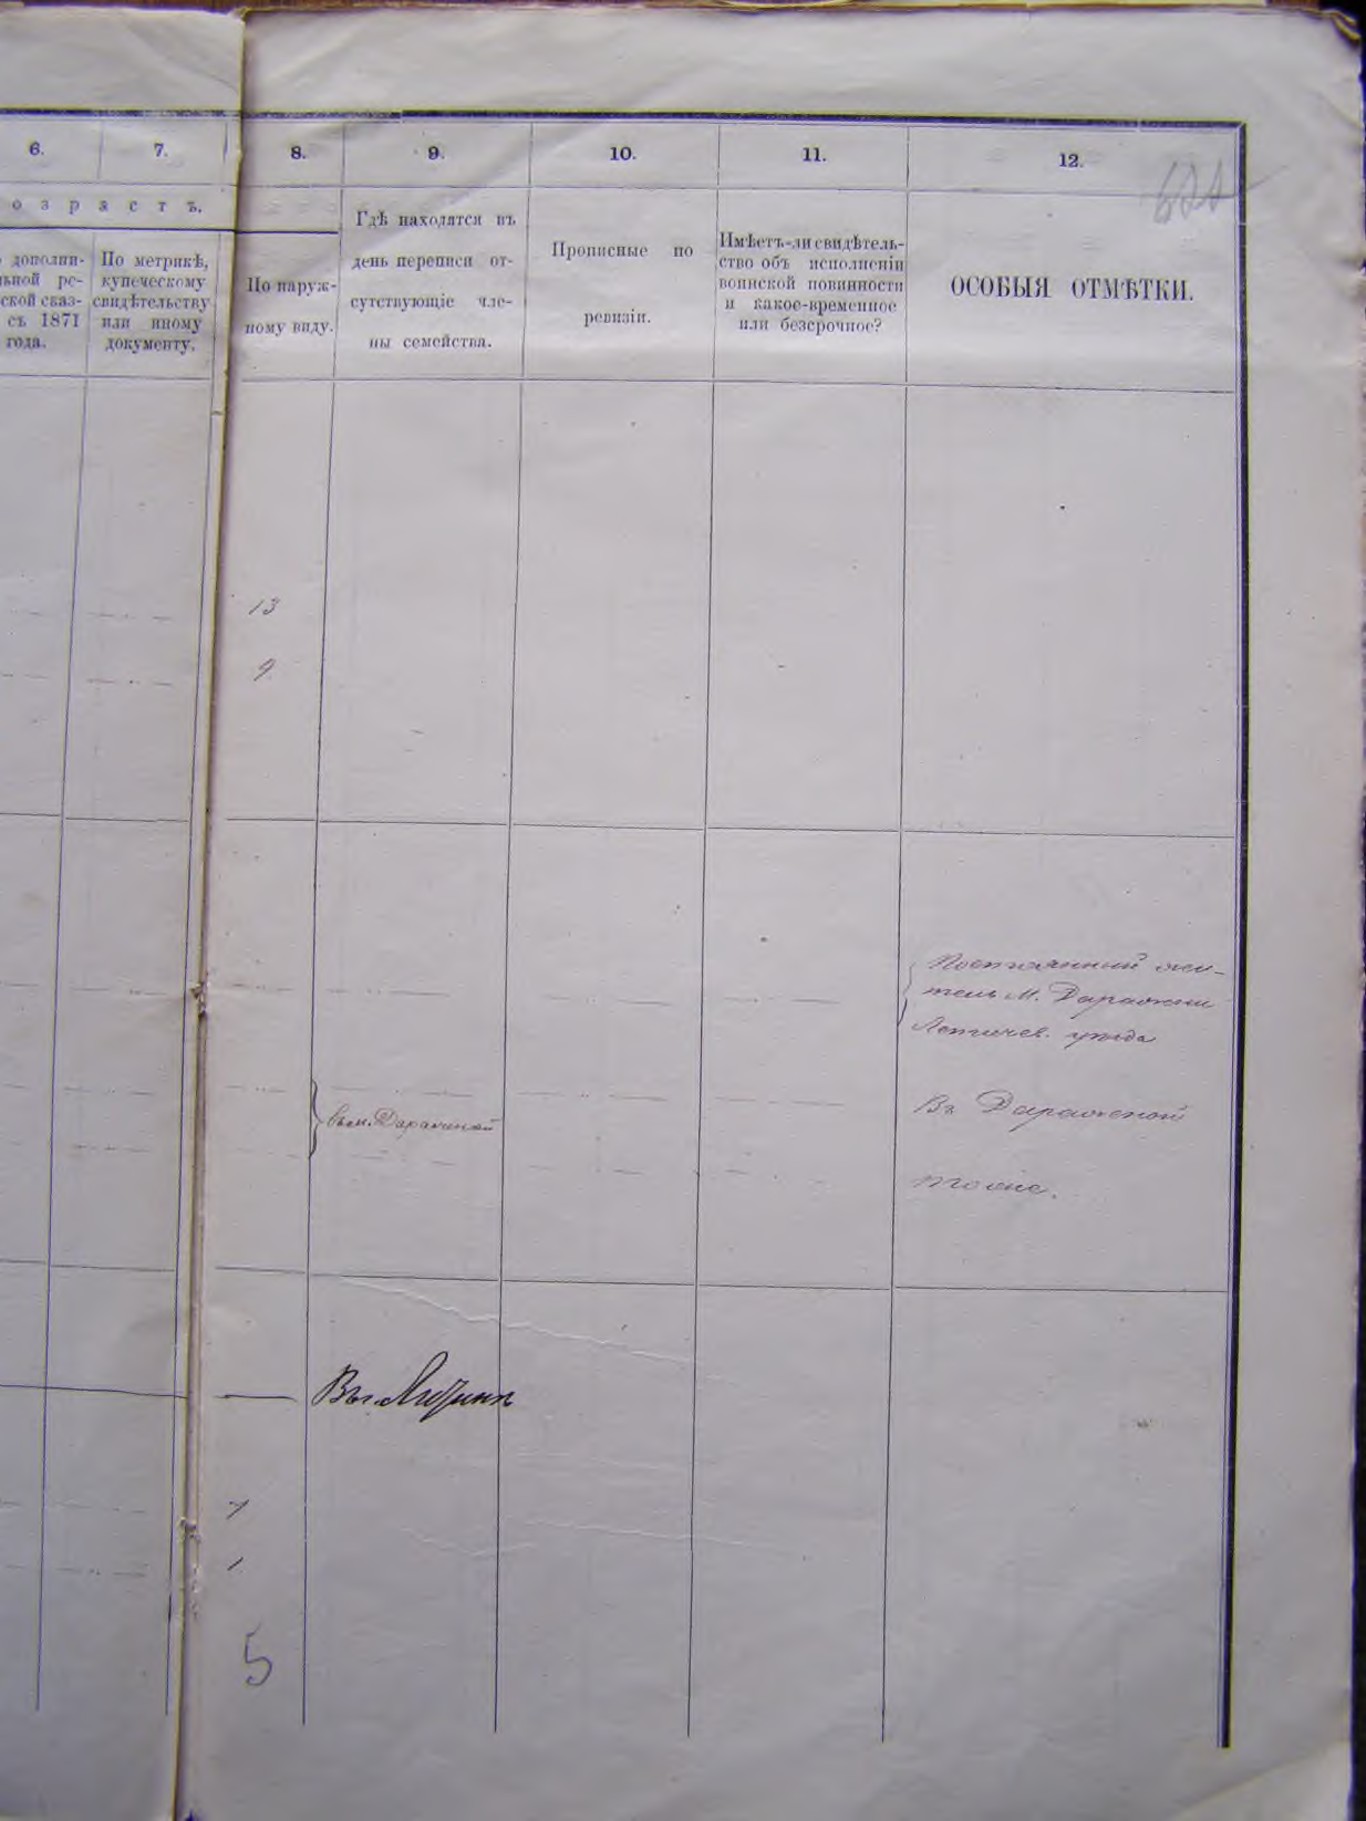 6.
7.
8.
9.
10.
11.
12.
о з р а с т ъ.
дополни-
ьной ре-
ской сказ-
съ 1871
года.
По метрикѣ,
купеческому
свидѣтельству
или иному
документу.
По наруж-
ному виду.
Гдѣ находятся въ
день переписи от-
сутствующіе чле-
ны семейства.
Прописные по
ревизіи.
Имѣетъ-ли свидѣтель-
ство объ исполненіи
воинской повинности
и какое-временное
или безсрочное?
ОСОБЫЯ ОТМѢТКИ.
13
9
Постоянный жи-
тель М. Деражни
Летичев. уѣзда
въ м. Деражной
Въ Деражной
тоже.
Въ
1
5